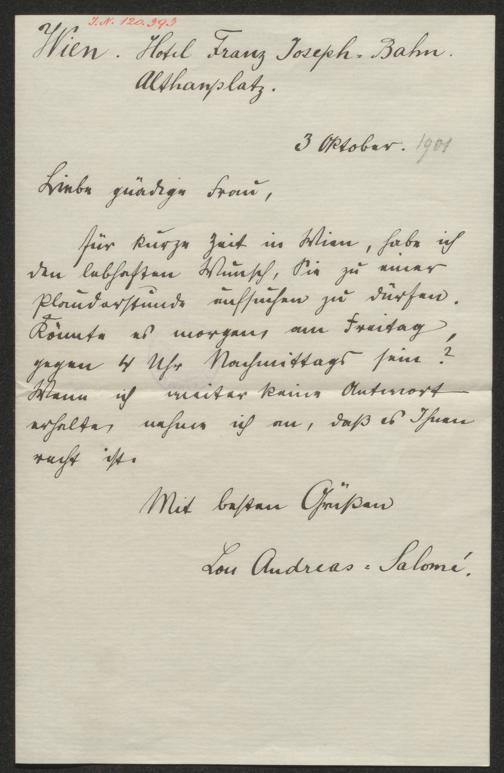 I.N. 120.393
Wien. Hotel Franz Joseph-Bahn.
Althanplatz.
3 Oktober. 1901
Liebe gnädige Frau,
für kurze Zeit in Wien, habe ich
den lebhaften Wunsch, Sie zu einer
Plauderstunde aufsuchen zu dürfen.
Könnte es morgen, am Freitag,
gegen 4 Uhr Nachmittags sein?
Wenn ich weiter keine Antwort
erhalte, nehme ich an, daß es Ihnen
recht ist.
Mit besten Grüßen
Lou Andreas-Salomé.